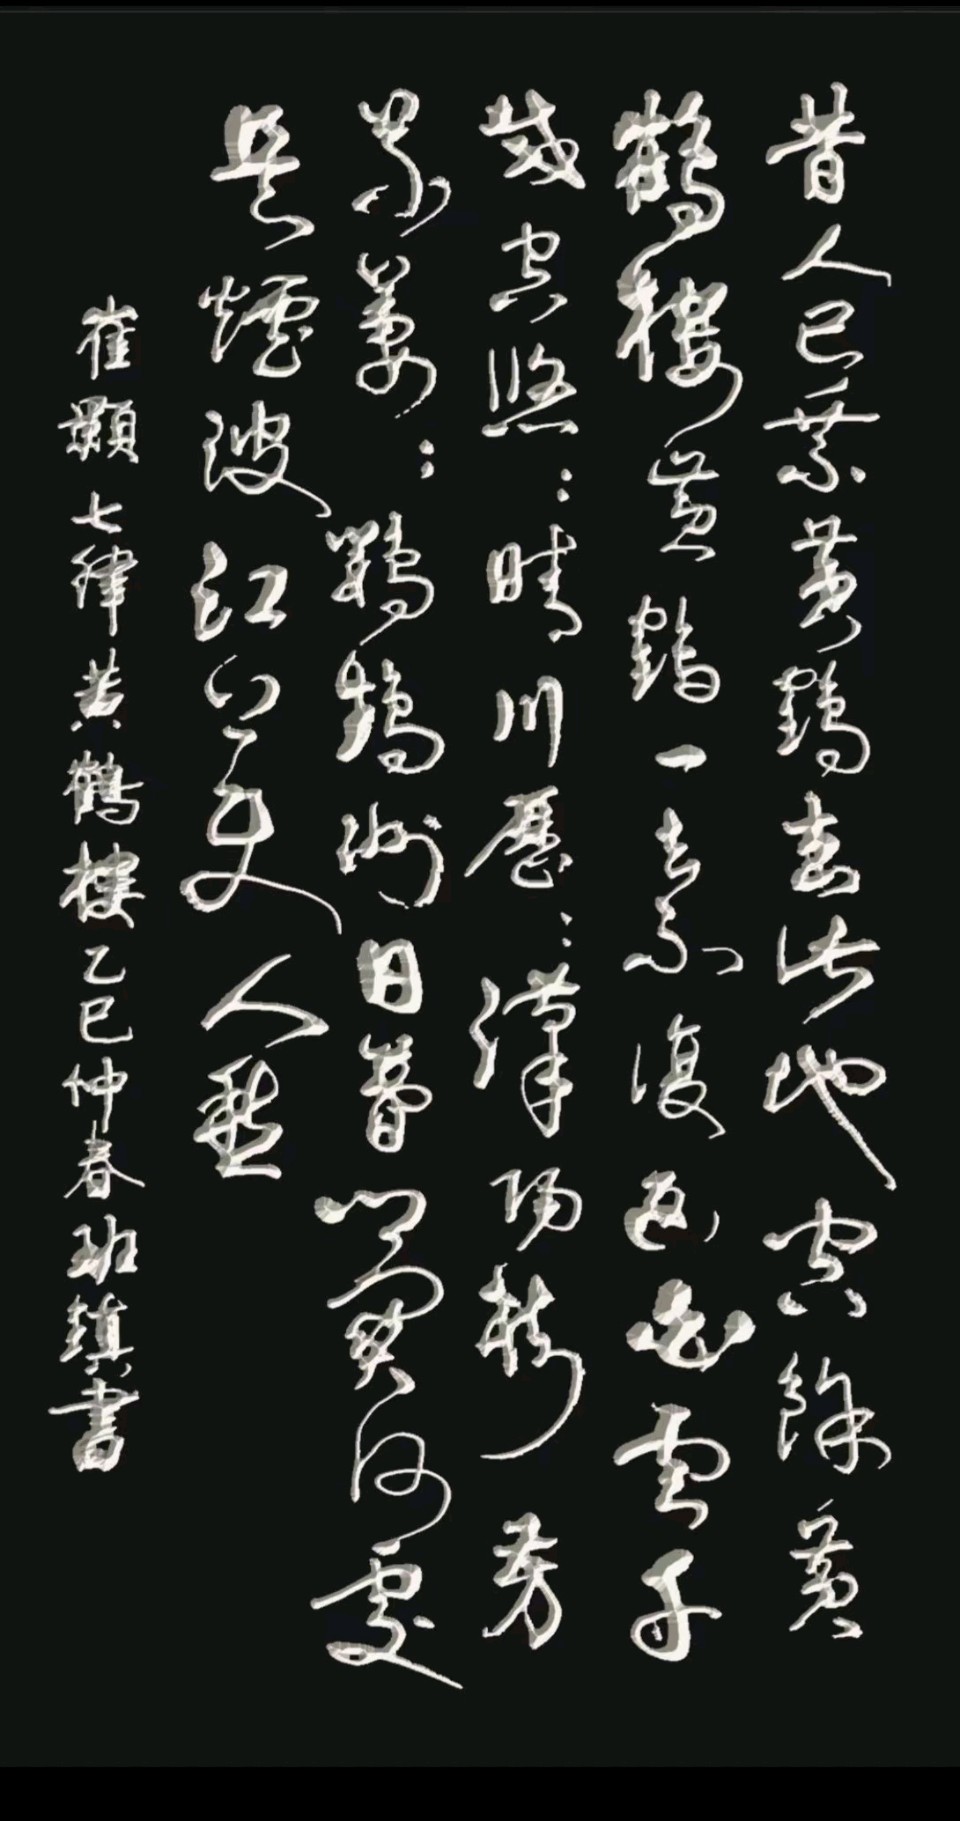 昔人已乘黃鶴去此地空餘黃
鶴樓黃鶴一去不復返白雲千
載空悠〻晴川歷〻漢陽樹芳
草萋〻鸚鵡洲日暮鄉關何處
是煙波江上使人愁
崔顥七律黃鶴樓乙巳仲春班鎮書